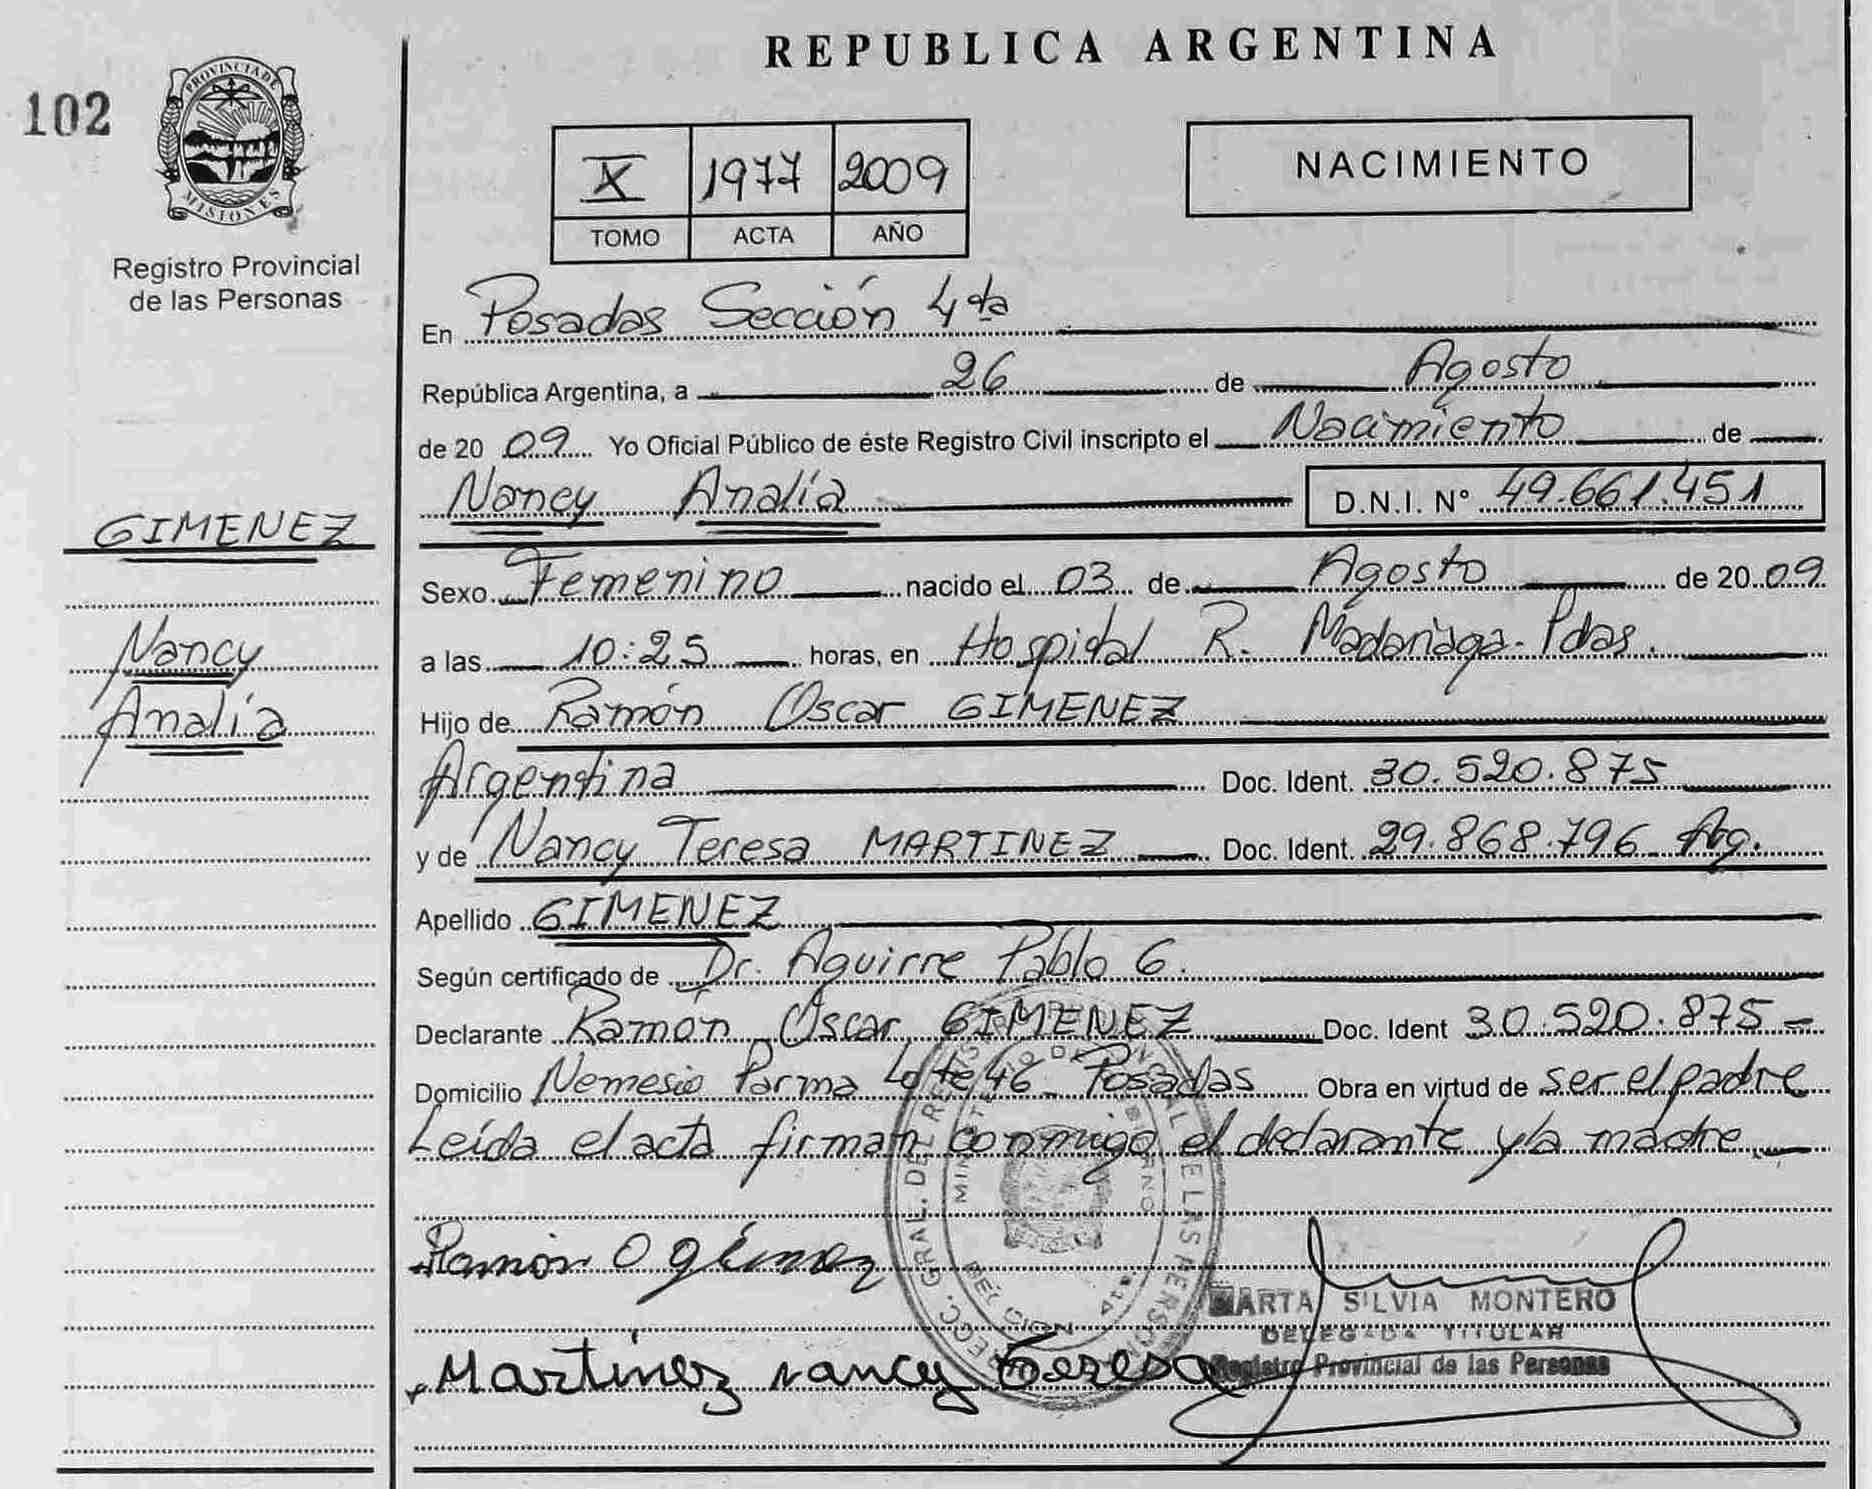 REPUBLICA ARGENTINA
102
PROVINCIA DE
MISIONES
Registro Provincial
de las Personas
X 1977 2009
TOMO ACTA AÑO
NACIMIENTO
En Posadas Sección 4ta
República Argentina, a 26 de Agosto
de 20 09 Yo Oficial Público de éste Registro Civil inscripto el Nacimiento de
Nancy Analía D.N.I. N° 49.661.451
GIMENEZ
Sexo Femenino nacido el 03 de Agosto de 20 09
Nancy
a las 10:25 horas, en Hospital R. Madariaga - Pdas.
Analía
Hijo de Ramón Oscar GIMENEZ
Argentina Doc. Ident. 30.520.875
y de Nancy Teresa MARTINEZ Doc. Ident. 29.868.796 Arg.
Apellido GIMENEZ
Según certificado de Dr. Aguirre Pablo G.
Declarante Ramón Oscar GIMENEZ Doc. Ident 30.520.875 -
Domicilio Nemesio Parma Lote 46 - Posadas Obra en virtud de ser el padre
Leída el acta firman conmigo el declarante y la madre
Ramón O Gimenez
MARTA SILVIA MONTERO
DELEGADA TITULAR
Registro Provincial de las Personas
Martinez nancy Teresa